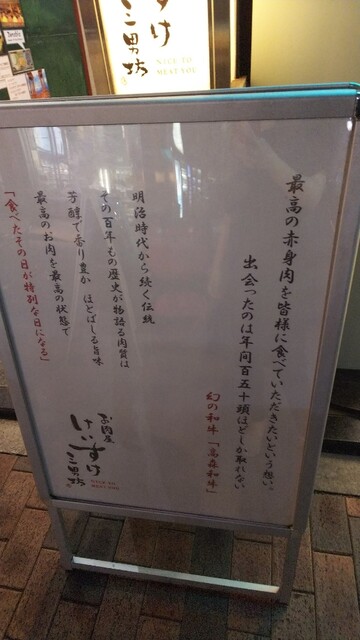 すけ
三男坊
NICE TO
MEAT YOU
最高の赤身肉を皆様に食べていただきたいという想い。
出会ったのは年間百五十頭ほどしか取れない
幻の和牛「高森和牛」
明治時代から続く伝統
その百年もの歴史が物語る肉質は
芳醇で香り豊か ほとばしる旨味
最高のお肉を最高の状態で
「食べたその日が特別な日になる」
お肉屋
けいすけ
三男坊
NICE TO
MEAT YOU